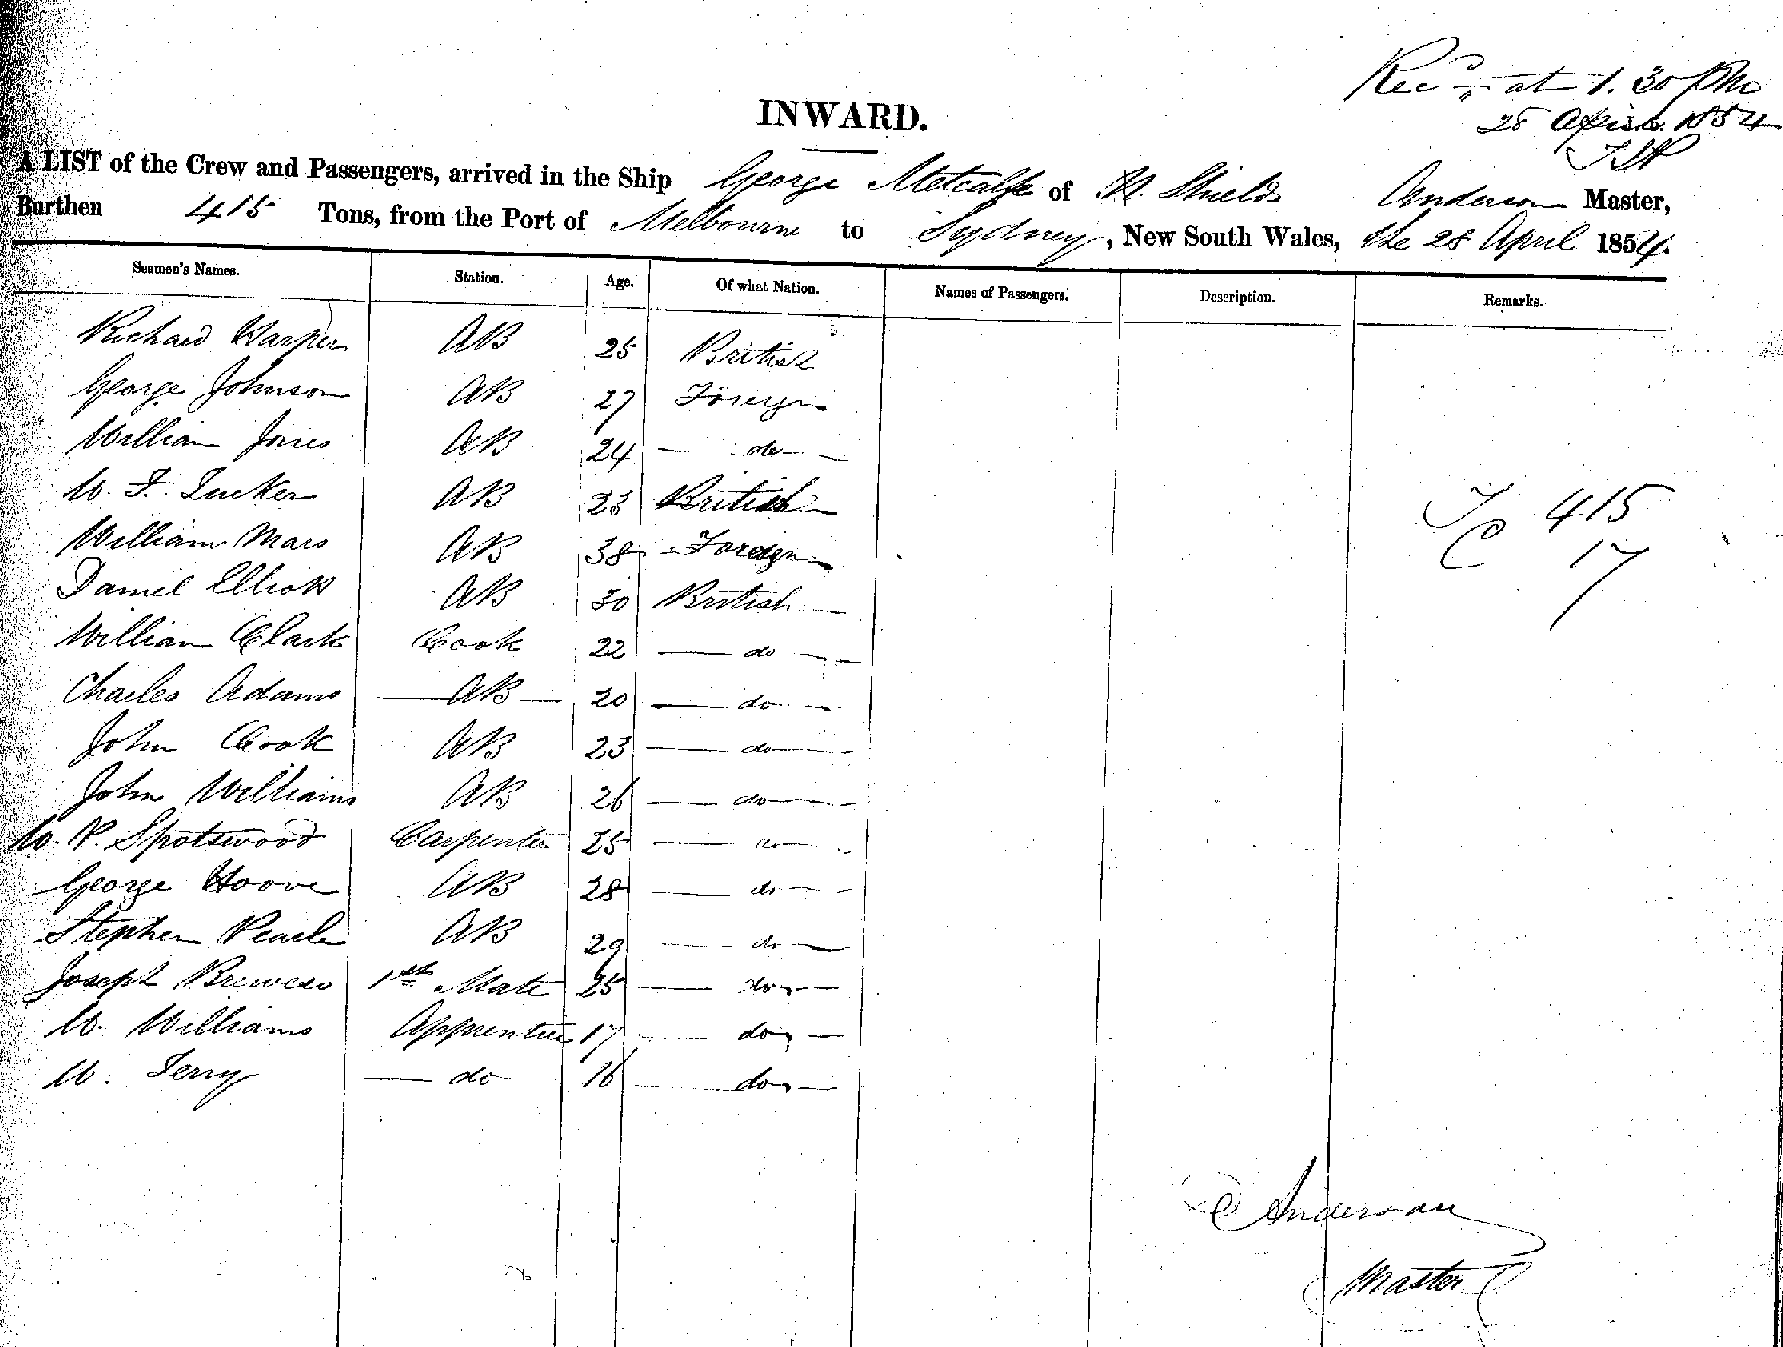 Recd at 1.30 PM
28 April 1854
INWARD.
A LIST of the Crew and Passengers, arrived in the Ship George Metcalfe of N. Shields Anderson Master,
Burthen 415 Tons, from the Port of Melbourne to Sydney, New South Wales, the 28 April 1854.
Seamen's Names. Station. Age. Of what Nation. Names of Passengers. Description. Remarks.
Richard Harper AB 25 British
George Johnson AB 27 Foreign
William Jones AB 24 — do —
W. F. Tucker AB 23 British
William Mars AB 38 Foreign
Daniel Elliott AB 30 British
William Clark Cook 22 — do —
Charles Adams AB 20 — do —
John Cook AB 23 — do —
John Williams AB 26 — do —
W. P. Spotswood Carpenter 25 — do —
George Hoove AB 28 — do —
Stephen Pearle AB 29 — do —
Joseph Brewers 1st Mate 25 — do —
W. Williams Apprentice 17 — do —
W. Terry — do 16 — do —
T 415
C 17
C Anderson
Master